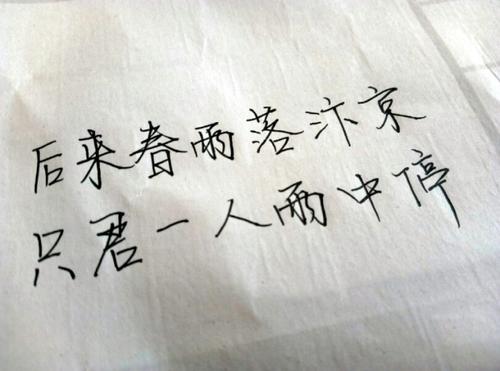 后来春雨落汴京
只君一人雨中停